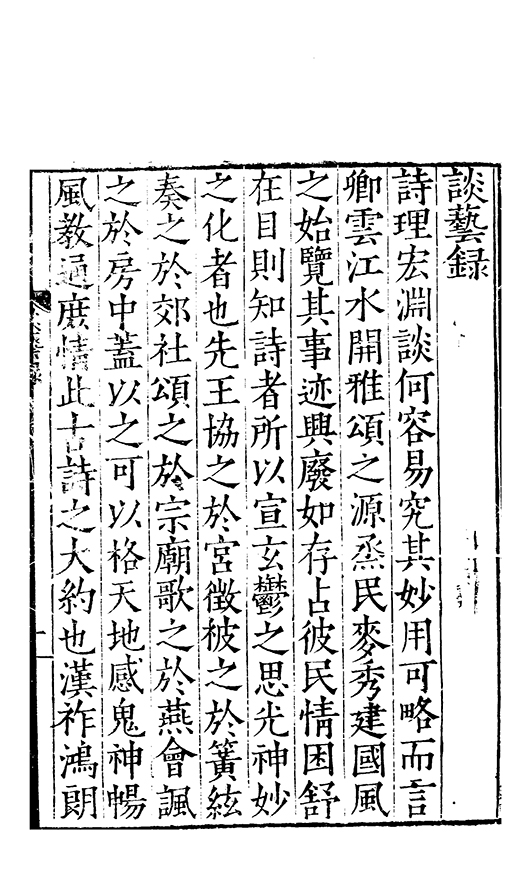 談藝録
詩理宏淵談何容易究其妙用可略而言
卿雲江水開雅頌之源烝民麥秀建國風
之始覽其事迹興廢如存占彼民情困舒
在目則知詩者所以宣玄鬱之思光神妙
之化者也先王協之於宮徵被之於簧絃
奏之於郊社頌之於宗廟歌之於燕會諷
之於房中蓋以之可以格天地感鬼神暢
風教通庶情此古詩之大約也漢祚鴻朗